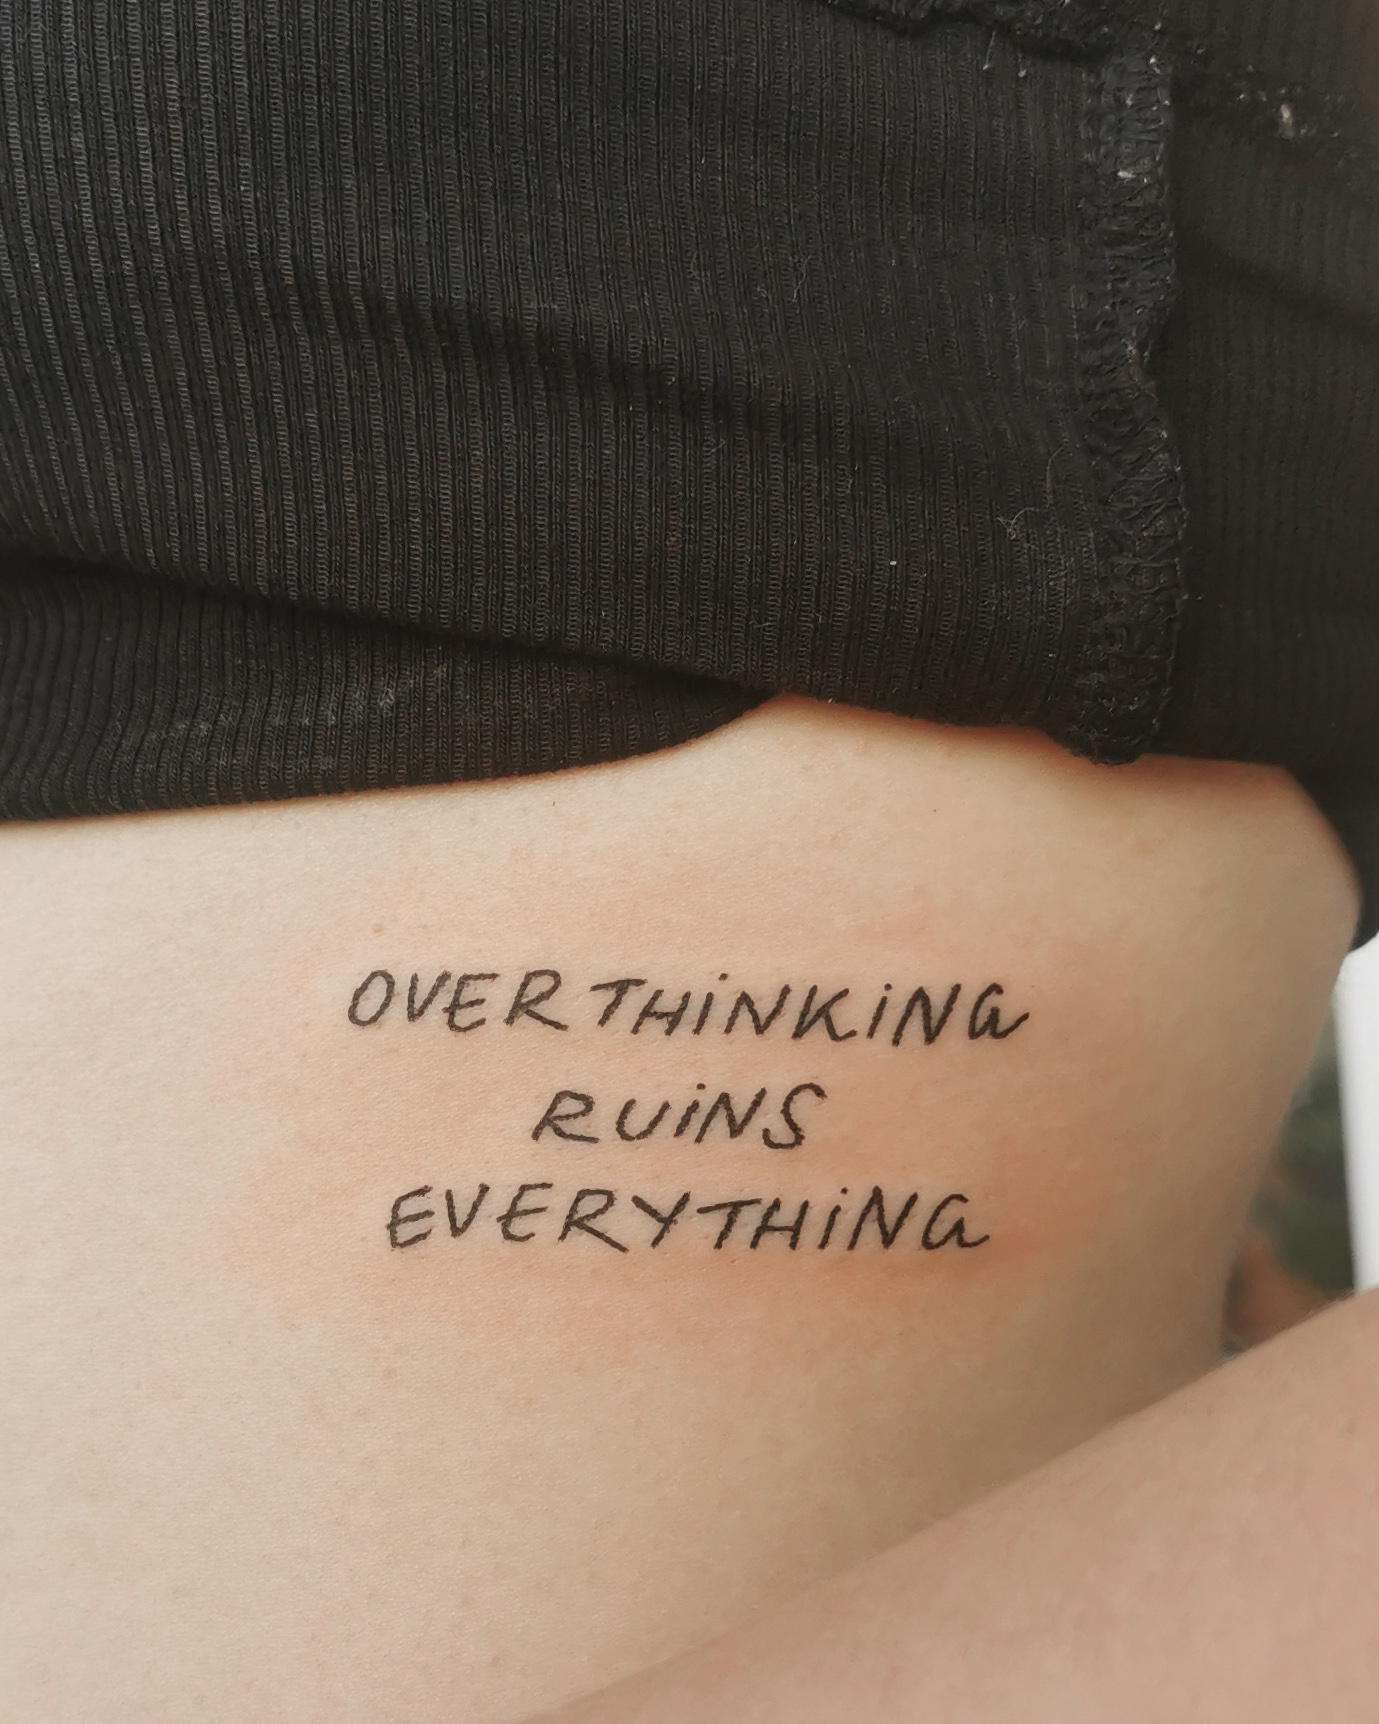 OVERTHiNKiNG
RUiNS
EVERYTHiNG